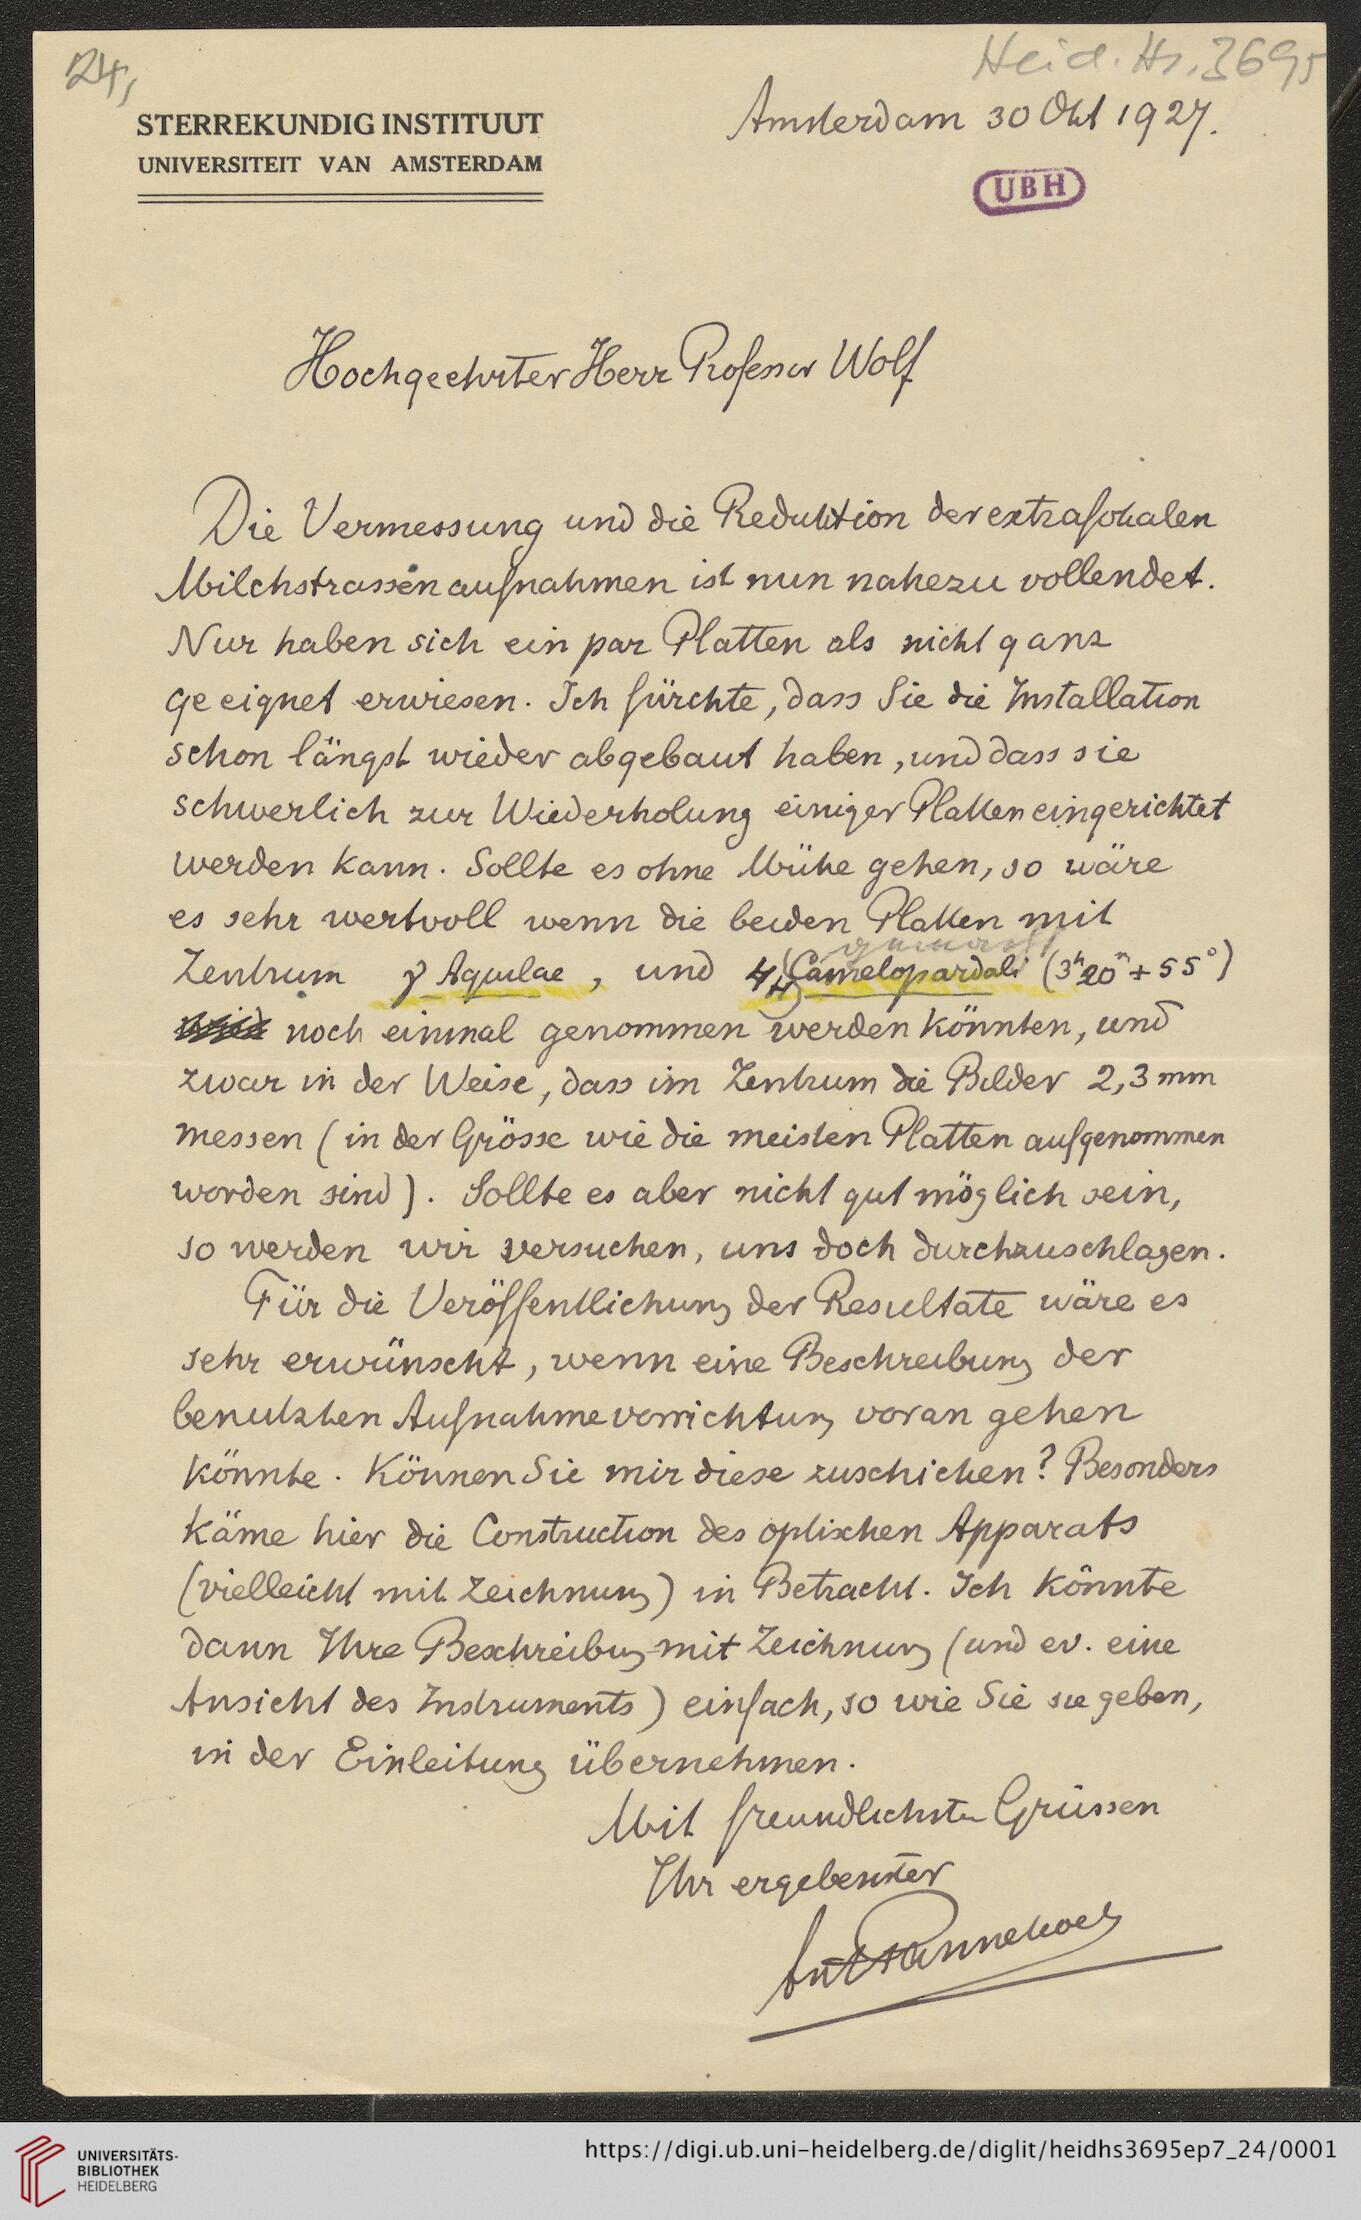 24,
Heid. Hs. 3695
STERREKUNDIG INSTITUUT
UNIVERSITEIT VAN AMSTERDAM
Amsterdam 30 Okt 1927.
UBH
Hochgeehrter Herr Professor Wolf
Die Vermessung und die Reduktion der extrafokalen
Milchstrassenaufnahmen ist nun nahezu vollendet.
Nur haben sich ein par Platten als nicht ganz
geeignet erwiesen. Ich fürchte, dass Sie die Installation
schon längst wieder abgebaut haben, und dass sie
schwerlich zur Wiederholung einiger Platten eingerichtet
werden kann. Sollte es ohne Mühe gehen, so wäre
es sehr wertvoll wenn die beiden Platten mit
Zentrum γ Aquilae, und 4 (H) Camelopardali (3h 20m + 55°)
noch einmal genommen werden könnten, und
zwar in der Weise, dass im Zentrum die Bilder 2,3 mm
messen (in der Grösse wie die meisten Platten aufgenommen
worden sind). Sollte es aber nicht gut möglich sein,
so werden wir versuchen, uns doch durchzuschlagen.
Für die Veröffentlichung der Resultate wäre es
sehr erwünscht, wenn eine Beschreibung der
benutzten Aufnahmevorrichtung voran gehen
könnte. Können Sie mir diese zuschicken? Besonders
käme hier die Construction des optischen Apparats
(vielleicht mit Zeichnung) in Betracht. Ich könnte
dann Ihre Beschreibung mit Zeichnung (und ev. eine
Ansicht des Instruments) einfach, so wie Sie sie geben,
in der Einleitung übernehmen.
Mit freundlichsten Grüssen
Ihr ergebenster
Ant Pannekoek
UNIVERSITÄTS-
BIBLIOTHEK
HEIDELBERG
https://digi.ub.uni-heidelberg.de/diglit/heidhs3695ep7_24/0001